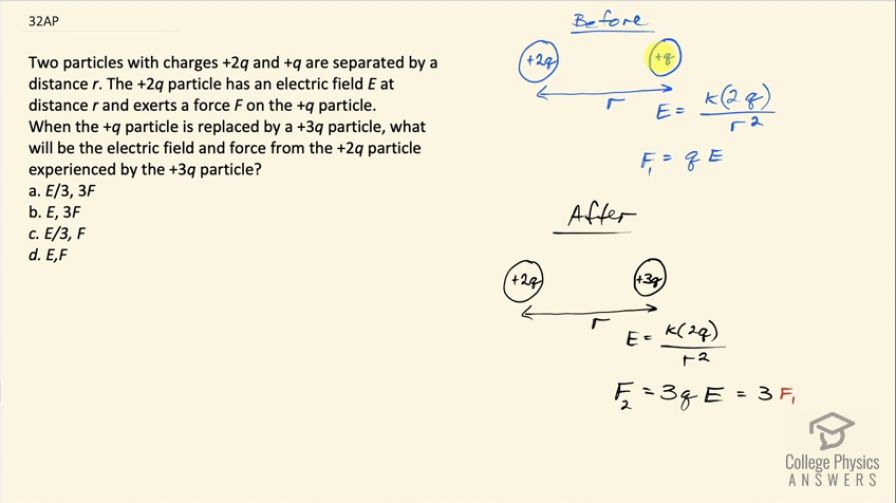 32AP
Two particles with charges +2q and +q are separated by a
distance r. The +2q particle has an electric field E at
distance r and exerts a force F on the +q particle.
When the +q particle is replaced by a +3q particle, what
will be the electric field and force from the +2q particle
experienced by the +3q particle?
a. E/3, 3F
b. E, 3F
c. E/3, F
d. E,F
Before
+2q +q
r
E = k(2q)/r²
F₁ = q E
After
+2q +3q
r
E = k(2q)/r²
F₂ = 3q E = 3 F₁
College Physics
ANSWERS